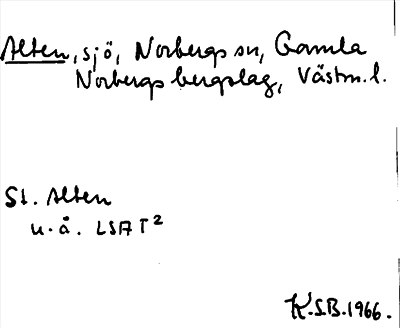 Alten, sjö, Norbergs sn, Gamla
Norbergs bergslag, Västm. l.
St. Alten
u. å. LSA T²
K.S.B. 1966.